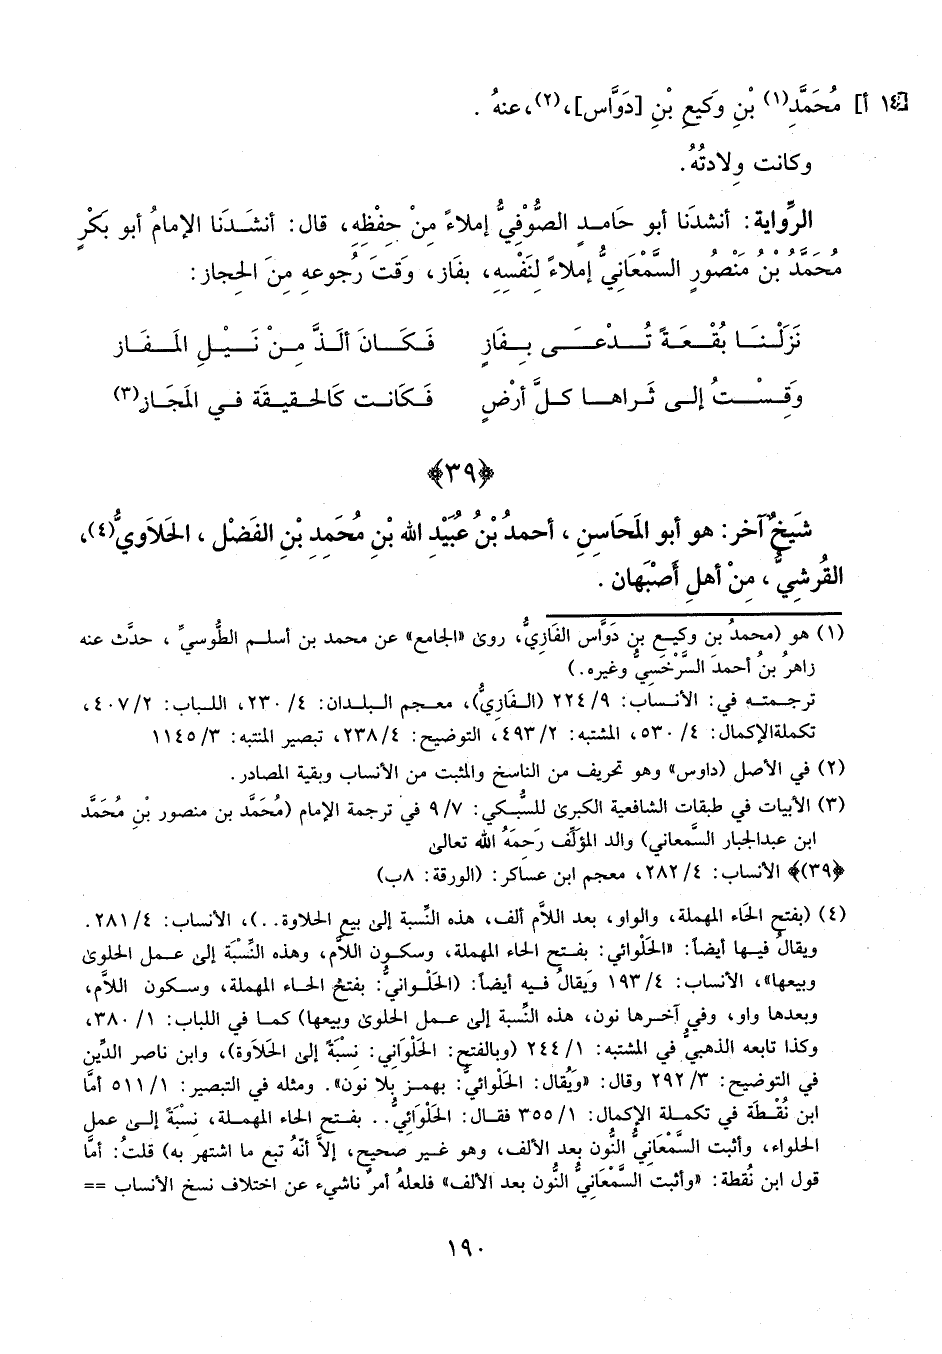 [١٤ أ] مُحَمَّدِ(١) بْنِ وَكيعِ بْنِ [دَوَّاس]،(٢)، عنهُ .
وكانت وِلادتُهُ.
الرِّواية: أنشدَنا أبو حَامدٍ الصُّوْفيُّ إملاءً مِنْ حِفْظِهِ، قال: أنشَدَنا الإمامُ أبو بكْرٍ
محمَّدُ بْنُ مَنْصُورٍ السَّمْعانيُّ إملاءً لنَفْسِهِ، بفَاز، وَقتَ رُجوعه مِنَ الحِجاز:
نَزَلْنَا بُقْعَةً تُدْعَى بِفَازٍ فَكَانَ ألذَّ مِنْ نَيْلِ المَفَاز
وَقِسْتُ إلى ثَراها كلَّ أرْضٍ فكَانت كَالحقيقَة في المَجَاز(٣)
﴿٣٩﴾
شَيخٌ آخر: هو أبو المَحَاسِنِ ، أحمدُ بْنُ عُبَيْدِ الله بْنِ مُحمَدِ بْنِ الفَضْل ، الحَلاَوِيُّ(٤)،
القُرشِيُّ ، مِنْ أهلِ أصْبَهان .
(١) هو (محمدُ بن وكيع بن دَوَّاس الفَازِيُّ، روىٰ «الجامع» عن محمد بن أسلم الطُّوسيِّ ، حدَّث عنه
زاهرُ بنُ أحمدَ السَّرْخَسِيُّ وغيره.)
ترجمته في: الأنساب: ٢٢٤/٩ (الفَازِيُّ)، معجم البلدان: ٢٣٠/٤، اللباب: ٤٠٧/٢،
تكملةالإكمال: ٥٣٠/٤، المشتبه: ٤٩٣/٢، التوضيح: ٢٣٨/٤، تبصير المنتبه: ١١٤٥/٣
(٢) في الأصل (داوس) وهو تحريف من الناسخ والمثبت من الأنساب وبقية المصادر.
(٣) الأبيات في طبقات الشافعية الكبرىٰ للسُّبكي: ٩/٧ في ترجمة الإمام (مُحَمَّد بن منصور بْنِ مُحَمَّد
ابن عبدالجبار السَّمعاني) والد المؤلِّف رَحِمَهُ الله تعالىٰ
﴿٣٩)﴾ الأنساب: ٢٨٢/٤، معجم ابن عساكر: (الورقة: ٨ب)
(٤) (بفتح الحَاء المهملة، والواو، بعد اللاَّم ألف، هذه النِّسبة إلىٰ بيع الحلاوة..)، الأنساب: ٢٨١/٤.
ويقالُ فيها أيضاً: «الحَلْوائي: بفتح الحاء المهملة، وسكون اللاَّم، وهذه النِّسْبَة إلىٰ عمل الحلوىٰ
وبيعها»، الأنساب: ١٩٣/٤ وَيقالُ فيه أيضاً: (الحَلْوانيُّ: بفتحْ الحاء المهملة، وسكون اللاَّم،
وبعدها واو، وفي آخرها نون، هذه النِّسبة إلىٰ عمل الحلوىٰ وبيعها) كما في اللباب: ٣٨٠/١،
وكذا تابعه الذهبيُّ في المشتبه: ٢٤٤/١ (وبالفتح: الحَلْوَاني: نسبَةً إلىٰ الحَلاَوة)، وابن ناصر الدِّين
في التوضيح: ٢٩٢/٣ وقال: «وَيُقال: الحَلْوائيُّ: بهمز بلا نون». ومثله في التبصير: ٥١١/١ أمَّا
ابن نُقْطَة في تكملة الإكمال: ٣٥٥/١ فقال: الحَلْوَائِيُّ.. بفتح الحاء المهملة، نسبَةً إلىٰ عمل
الحلواء، وأثبت السَّمْعَانيُّ النُّون بعد الألف، وهو غير صحيح، إلاَّ أنهُ تبع ما اشتهر به) قلتُ: أمَّا
قول ابن نُقطة: «وأثبت السَّمْعَانيُّ النُّون بعد الألف» فلعلهُ أمرٌ ناشىء عن اختلاف نسخ الأنساب ==
١٩٠